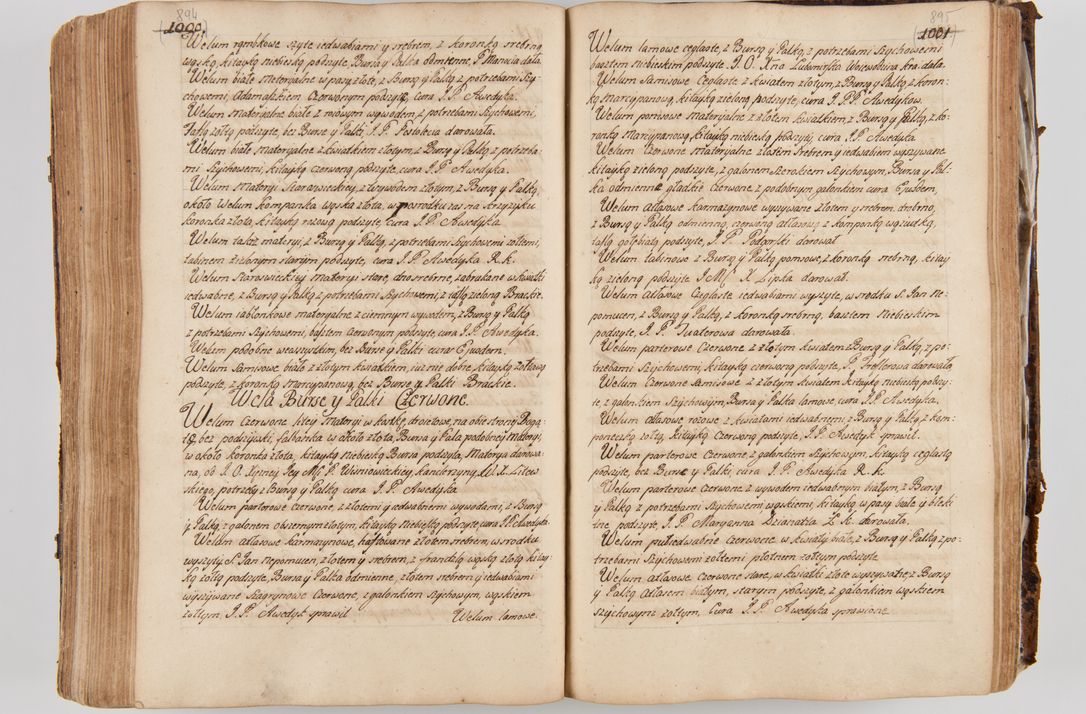 894
1000.
Welum rąbkowe szyte iedwabiami y srebrem, z koronką srebrną
wąską, kitayką niebieską podszyte, Bursa y Palka odmienne, P. Marcia dała.
Welum białe materyalne w pasy złote, z Bursą y Palką z potrzebami Szy-
chowemi, Adamaszkiem Czerwonym podszyte, cura J. P. Awedyka.
Welum materyalne białe z rożowym wywodem, z potrzebami Szychowemi,
łaką żołtą podszyte, bez Burse y Palki, J. P. darowała.
Welum białe materyalne z kwiatkiem złotym, z Bursą y Palką z potrzeba-
mi Szychowemi, kitayką czerwoną podszyte, cura J. P. Awedyka.
Welum materyi Starowieckiey, z wywodem złotym, z Bursą y Palką,
około Welum kompanka wąska złota, w posrodku zas na krzyżyku
koronka złota, kitayką rożową podszyte, cura J. P. Awedyka.
Welum takiż materyi z Bursą y Palką, z potrzebami Szychowemi żołtemi,
tabinem zielonym starym podszyte, cura J. P. Awedyka R. k.
Welum Starowieckiey materyi stare, dno srebrne, fabrukane w kwiatki
iedwabne, z Bursą y Palką z potrzebami Szychowemi, z zieloną Brackie.
Welum iabłonkowe materyalne z ciemnym wywodem, z Bursą y Palką
z potrzebami Szychowemi, basztem Czerwonym podszyte, cura J. P. Awedyka.
Welum podobne we wszystkim, bez Burse y Palki cura Ejusdem.
Welum Samisowe białe z złotym kwiatkiem, iuż nie dobre, kitayką żołtawą
podszyte, z koronką Marcypanową, bez Burse y Palki Brackie.
Wela Burse y Palki Czerwone.
Welum Czerwone litey Materyi w kostkę, troiste, na obie strony Boga-
te, bez podszywki, falbanka w około złota, Bursa y Pala podobney materyi,
w około koronka złota, kitayką niebieską Bursa podszyta, Materya darowa-
na, od J. O. Xiężney Jey Mci P. Wisniowieckiey Kanclerzyny W. X. Litew-
skiego, potrzeby z Bursą y Palką cura J. P. Awedyka
Welum parterowe Czerwone, z złotemi y iedwabnemi wywodami, z Bursą
y Palką, z galonem obszernym złotym, kitayką niebieską podszyte, cura J. P. Awedyka
Welum Atłasowe karmazynowe, haftowane złotem srebrem, w srodku
wyszyty S. Jan Nepomucen, złotem y srebrem, z frandzlą wąską złotą kitay-
ką żołtą podszyte, Bursa y Palka odmienne, złotem srebrem y iedwabiami
wyszywane Szagrynowe Czerwone, z galonkiem Szychowym, wąskiem
żołtym, J. P. Awedyk sprawił
Welum lamowe.
895
1001
Welum lamowe ceglaste, z Bursą y Palką, z potrzebami Szychowemi
basztem niebieskim podszyte J. O. Xna Lubomirska Woiewodzina Kra: dała.
Welum Samisowe Ceglaste z kwiatem złotym, z Bursą y Palką, z koron-
ką marcypanową, kitayką zieloną, podszyte, cura J. PP. Awedykow.
Welum ponsowe materyalne z złotem kwiatkiem, z Bursą y Palką, z ko-
ronką Marcypanową kitayką niebieską podszyty, cura J. P. Awedyka.
Welum Czerwone Materyalne złotem srebrem y iedwabiem wyszywane
kitayką zieloną podszyte, z galonem szerokiem Szychowym, Bursa y Pal-
ka odmienne gładkie Czerwone, z podobnym galonkiem cura Ejusdem,
Welum Atłasowe karmazynowe wyszywane złotem y srebrem, drobno,
z Bursą y Palką odmienną, czerwoną atłasową z kompanką wązuską,
łaką gołębią podszyte, J. P. Podgorski darował.
Welum tabinowe z Bursą y Palką ponsowe, z koronką srebrną, kitay-
ką zieloną podszyte J. M. X Lipka darował.
Welum atłasowe Ceglaste iedwabiami wyszyte, w srodku S. Jan Ne-
pomucen, z Bursą y Palką, z koronką srebrną, basztem niebieskim
podszyte, J. P. Suaterowa darowała.
Welum parterowe Czerwone z złotym kwiatem z Bursą y Palką, z po-
trzebami Szychowemi, kitayką czerwoną podszyte, P. darowała
Welum Czerwone Samisowe z złotym kwiatem kitayką niebieską podszy-
te, z galonkiem Szychowym, Bursa y Palka lamowe, cura J. P. Awedyka.
Welum atłasowe rożowe z kwiatami iedwabnemi, z Bursą y Palką, z kam-
poneczką żołtą, kitayką Czerwoną podszyte, J. P. Awedyk sprawił.
Welum parterowe Czerwone, z galonkiem Szychowym, kitayką ceglastą
podszyte, bez Burse y Palki, cura J. P. Awedyka R. k.
Welum parterowe Czerwone, z wywodem iedwabnym białym, z Bursą
y Palką z potrzebami Szychowemi wąskiemi, kitayką w pasy białe y błeki-
tne podszyte, J. P. Maryanna Dzianotta Z. K. darowała.
Welum pułiedwabne Czerwone w kwiaty białe, z Bursą y Palką z po-
trzebami Szychowemi żołtemi płotnem żołtym podszyte
Welum atłasowe Czerwone stare, w kwiatki złote wyszywane, z Bursą
y Palką Atłasem białym, starym podszyte, z galonkiem wąskiem
Szychowym żołtym, Cura J. P. Awedyka sprawione